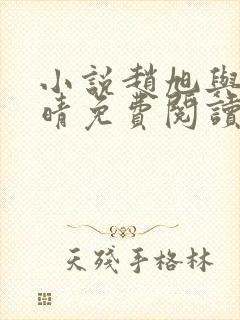 小説趙旭與
晴免費閱讀
天殘手格林